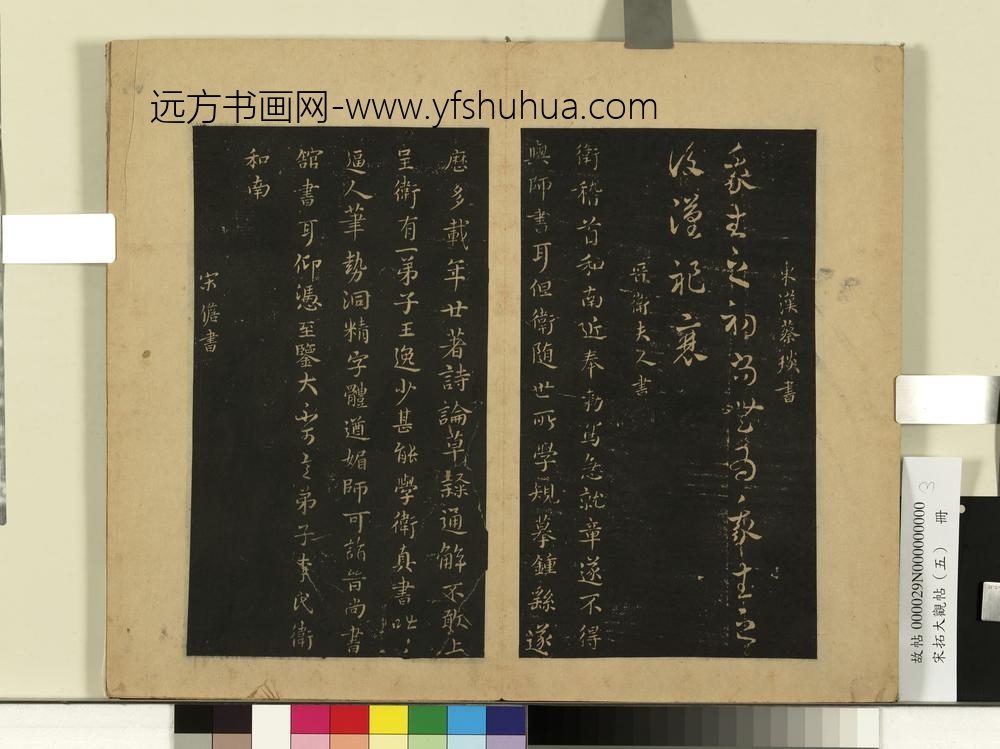 远方书画网-www.yfshuhua.com
東漢蔡琰書
我生之初尚無為我生之
後漢祀衰
晉衛夫人書
衛稽首和南近奉勅寫急就章遂不得
與師書耳但衛随世所學規摹鍾繇遂
歷多載年廿著詩論草隸通解不敢上
呈衛有一弟子王逸少甚能學衛真書咄〻
逼人筆勢洞精字體遒媚師可詣晉尚書
館書耳仰憑至鑒大不可言弟子李氏衛
和南
宋儋書
故帖000029N000000000
宋拓大觀帖(五) 冊
3